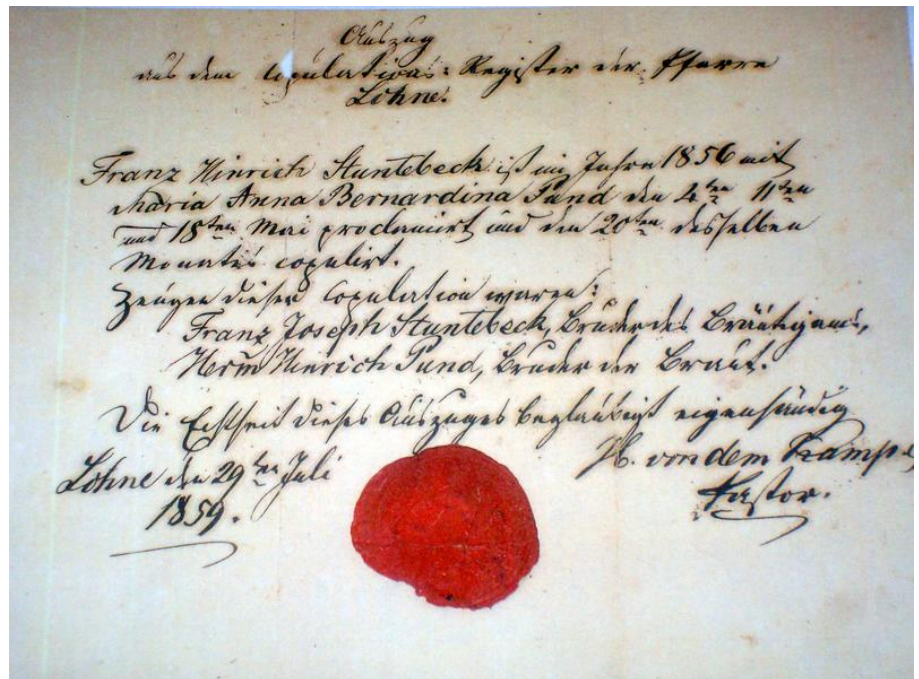 Auszug
aus dem Copulations-Register der Pfarre
Lohne.
Franz Hinrich Stuntebeck ist im Jahre 1856 mit
Maria Anna Bernardina Pund den 4ten 11ten
und 18ten Mai proclamirt und den 20ten desselben
Monates copulirt.
Zeugen dieser Copulation waren:
Franz Joseph Stuntebeck, Bruder des Bräutigams,
Herm Hinrich Pund, Bruder der Braut.
Die Echtheit dieses Auszuges beglaubigt eigenhändig
Lohne den 29ten Juli
1859.
von dem Kampe,
Pastor.